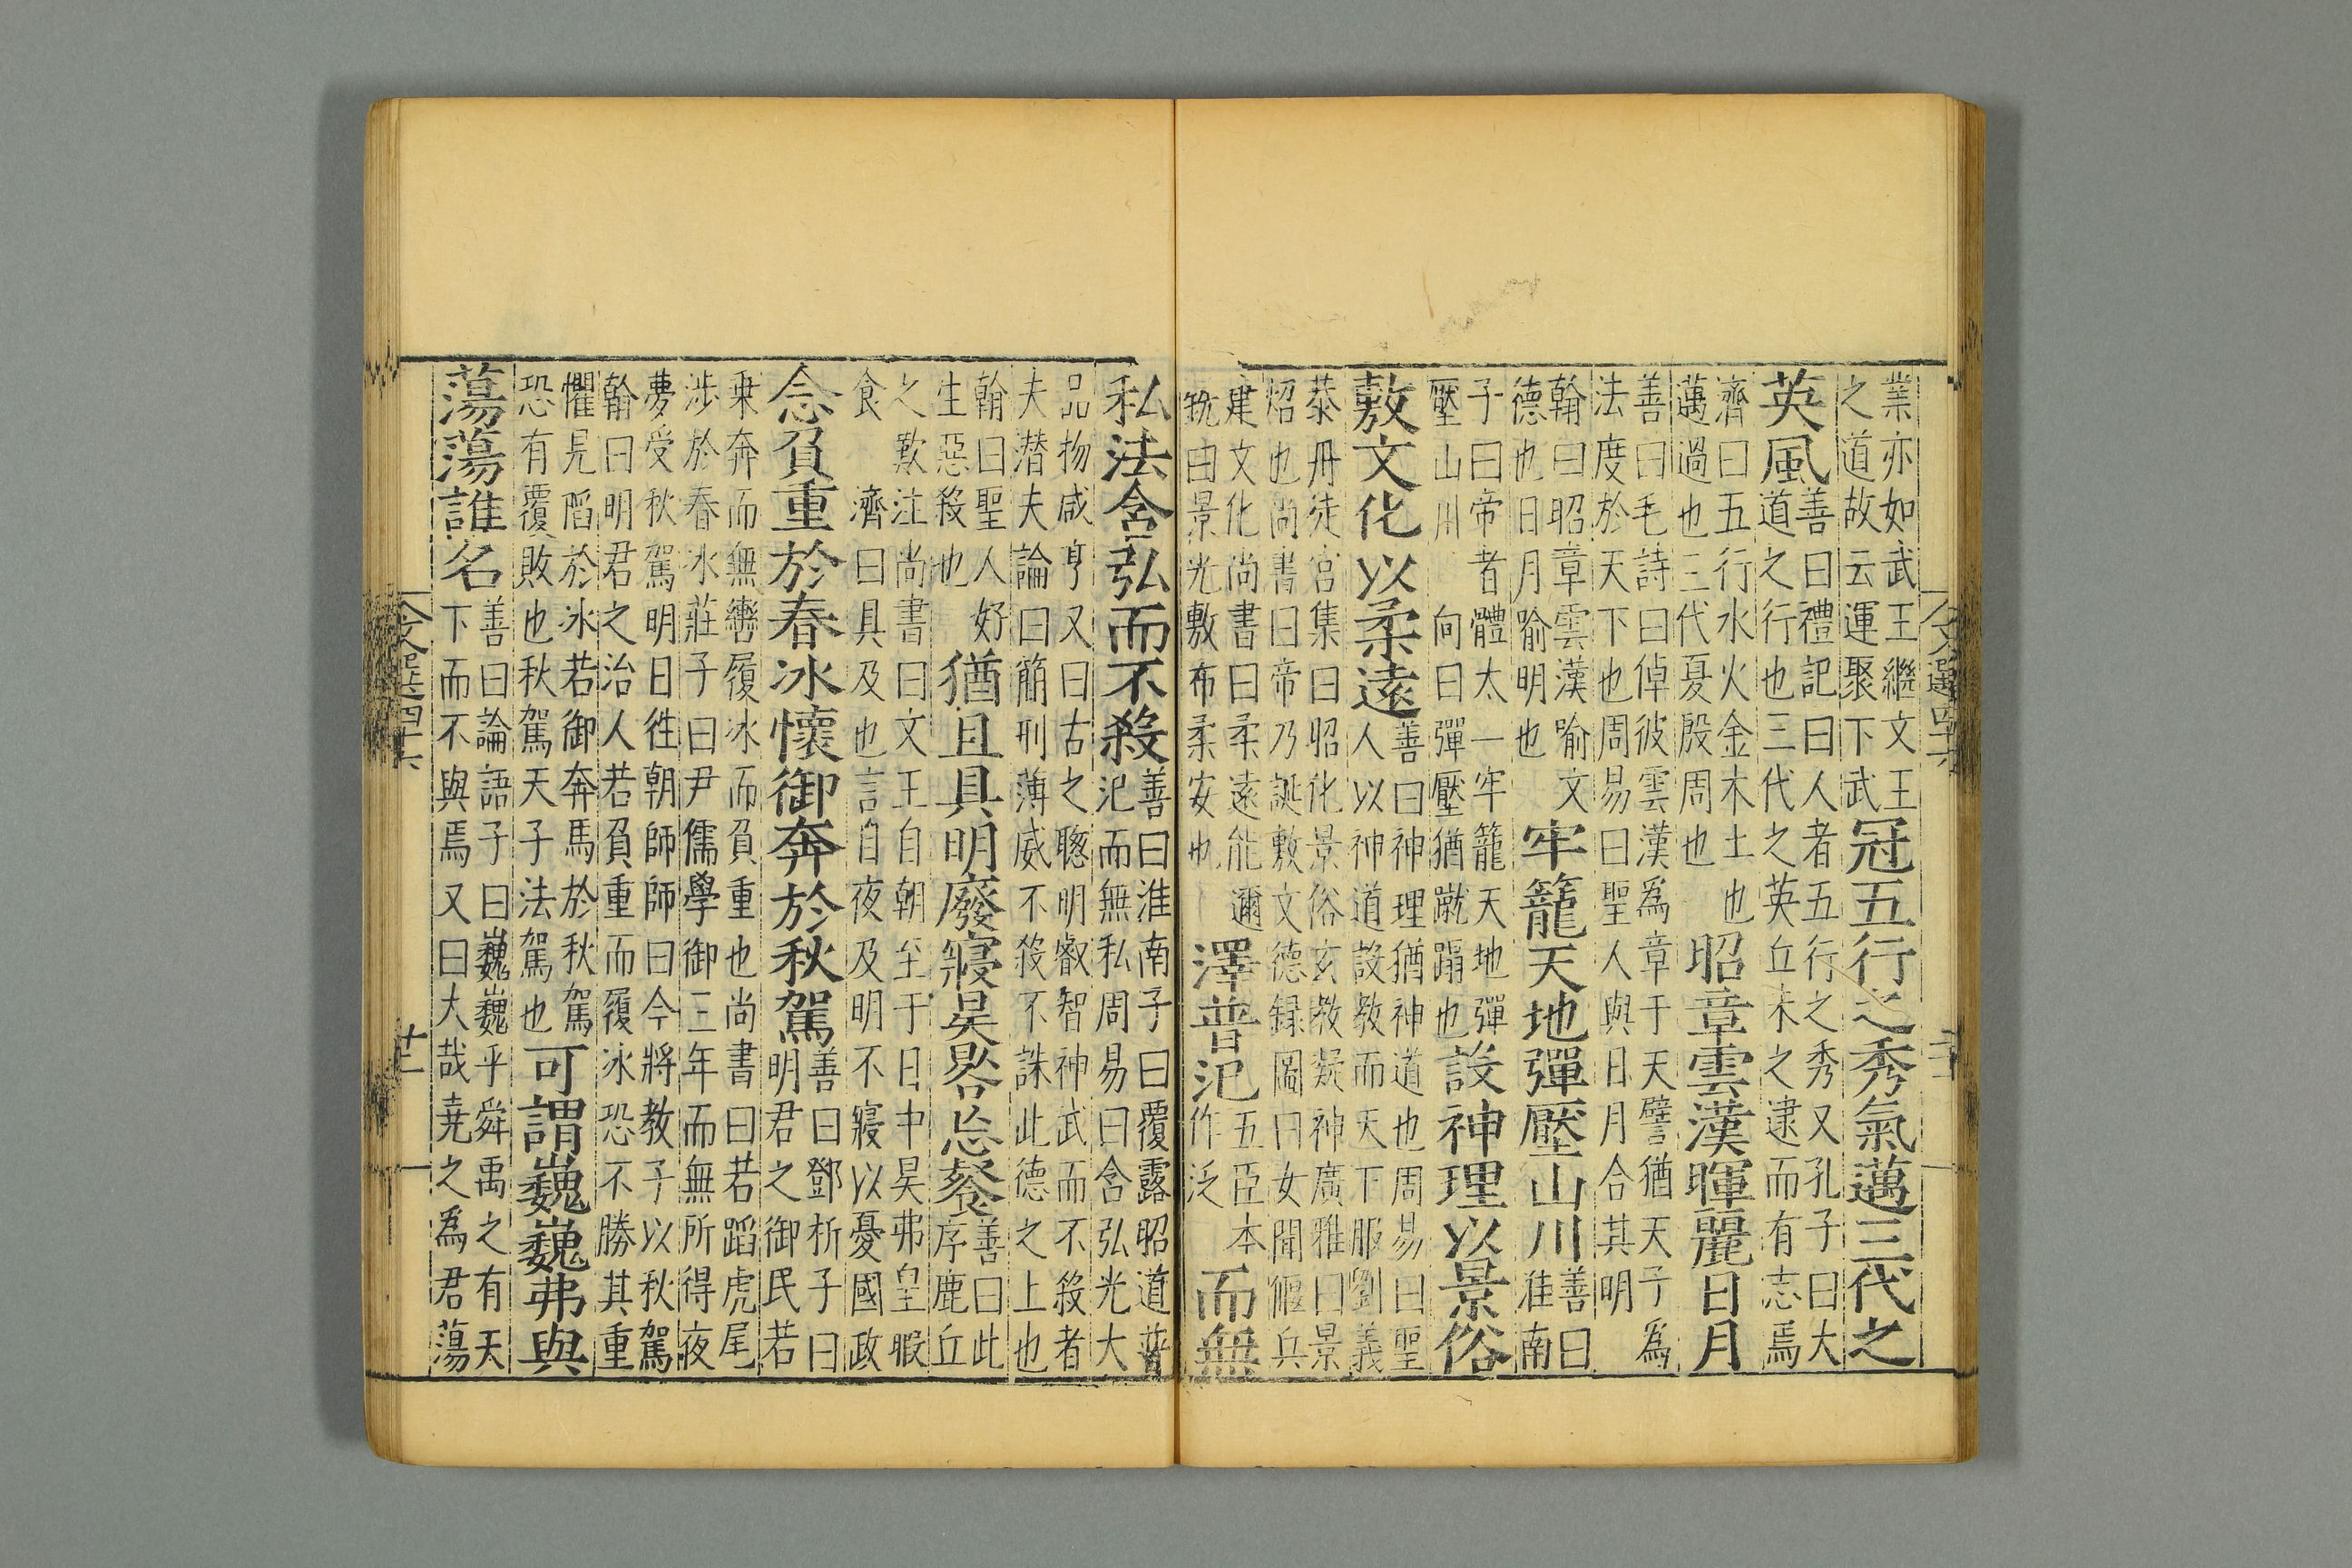 業亦如武王繼文王
之道故云運聚下武
冠五行之秀氣邁三代之
英風
善曰禮記曰人者五行之秀又孔子曰大
道之行也三代之英丘未之逮而有志焉
濟曰五行水火金木土也
邁過也三代夏殷周也
昭章雲漢暉麗日月
善曰毛詩曰倬彼雲漢爲章于天譬猶天子爲
法度於天下也周易曰聖人與日月合其明
翰曰昭章雲漢喻文
德也日月喻明也
牢籠天地彈壓山川
善曰
淮南
子曰帝者體太一牢籠天地彈
壓山川 向曰彈壓猶蹴蹋也
設神理以景俗
敷文化以柔遠
善曰神理猶神道也周易曰聖
人以神道設教而天下服劉義
恭丹徒宮集曰昭化景俗玄教凝神廣雅曰景
炤也尚書曰帝乃誕敷文德録圖曰女聞偃兵
建文化尚書曰柔遠能邇
銑曰景光敷布柔安也
澤普汜
五臣本
作泛
而無
私法含弘而不殺
善曰淮南子曰覆露昭道普
汜而無私周易曰含弘光大
品物咸亨又曰古之聰明叡智神武而不殺者
夫潜夫論曰簡刑薄威不殺不誅此德之上也
翰曰聖人好
生惡殺也
猶且具明廢寢昃晷忘餐
善曰此
序鹿丘
之歎注尚書曰文王自朝至于日中昃弗皇暇
食 濟曰具及也言自夜及明不寢以憂國政
念負重於春冰懷御奔於秋駕
善曰鄧析子曰
明君之御民若
乗奔而無轡履冰而負重也尚書曰若蹈虎尾
涉於春冰莊子曰尹儒學御三年而無所得夜
夢受秋駕明日徃朝師師曰今將教子以秋駕
翰曰明君之治人若負重而履冰恐不勝其重
懼見陷於冰若御奔馬於秋駕
恐有覆敗也秋駕天子法駕也
可謂巍巍弗與
蕩蕩誰名
善曰論語子曰巍巍乎舜禹之有天
下而不與焉又曰大哉堯之爲君蕩